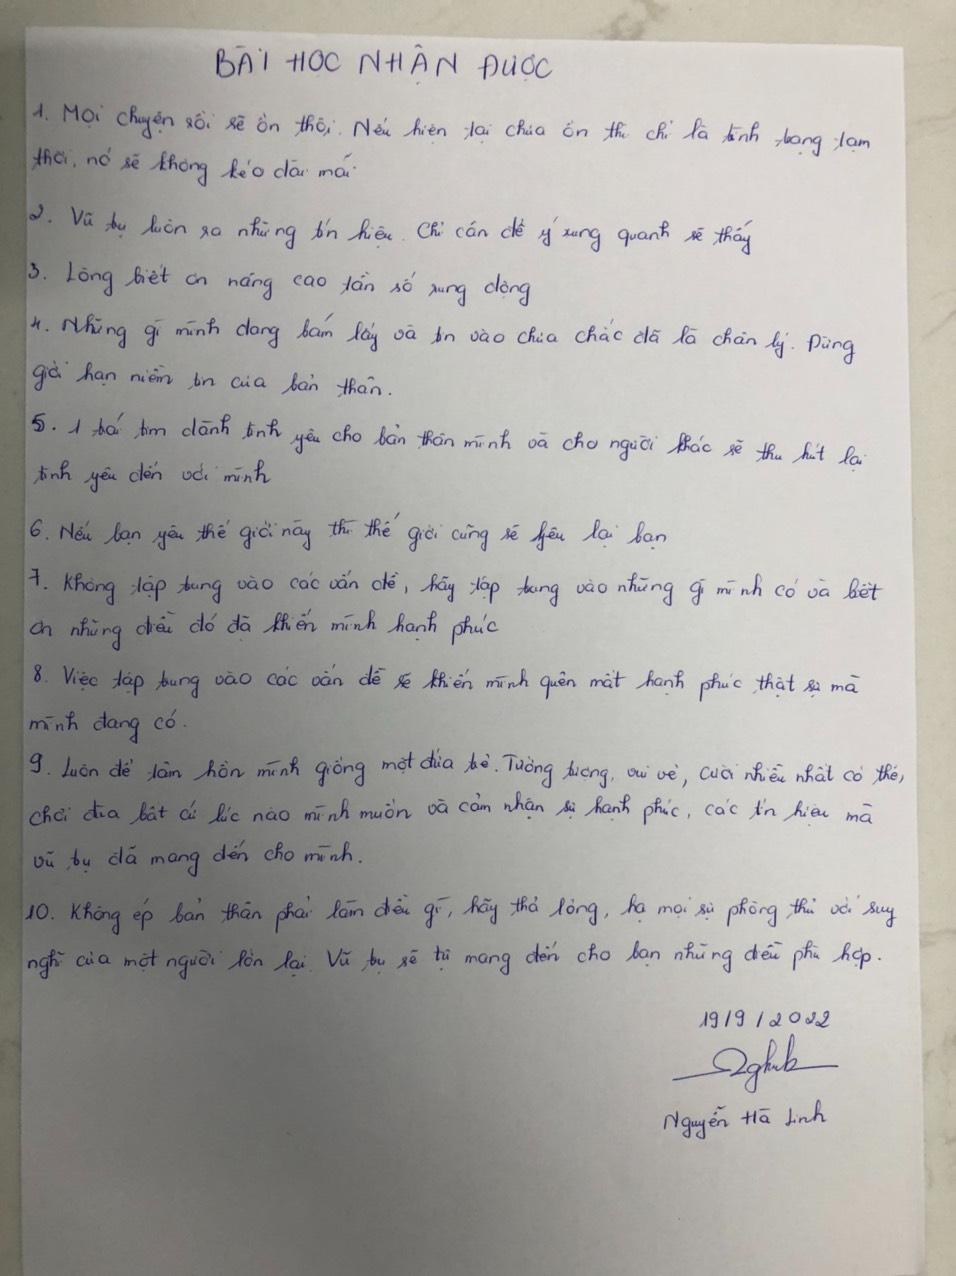 BÀI HỌC NHẬN ĐƯỢC
1. Mọi chuyện rồi sẽ ổn thôi. Nếu hiện tại chưa ổn thì chỉ là tình trạng tạm
thời, nó sẽ không kéo dài mãi.
2. Vũ trụ luôn ra những tín hiệu. Chỉ cần để ý xung quanh sẽ thấy
3. Lòng biết ơn nâng cao tần số rung động
4. Những gì mình đang bám lấy và tin vào chưa chắc đã là chân lý. Đừng
giới hạn niềm tin của bản thân.
5. 1 trái tim dành tình yêu cho bản thân mình và cho người khác sẽ thu hút lại
tình yêu đến với mình
6. Nếu bạn yêu thế giới này thì thế giới cũng sẽ yêu lại bạn
7. Không tập trung vào các vấn đề, hãy tập trung vào những gì mình có và biết
ơn những điều đó đã khiến mình hạnh phúc
8. Việc tập trung vào các vấn đề sẽ khiến mình quên mất hạnh phúc thật sự mà
mình đang có.
9. Luôn để tâm hồn mình giống một đứa bé. Tưởng tượng, vui vẻ, cười nhiều nhất có thể,
chơi đùa bất cứ lúc nào mình muốn và cảm nhận sự hạnh phúc, các tín hiệu mà
vũ trụ đã mang đến cho mình.
10. Không ép bản thân phải làm điều gì, hãy thả lỏng, hạ mọi sự phòng thủ với suy
nghĩ của một người lớn lại. Vũ trụ sẽ tự mang đến cho bạn những điều phù hợp.
19/9/2022
Nguyễn Hà Linh